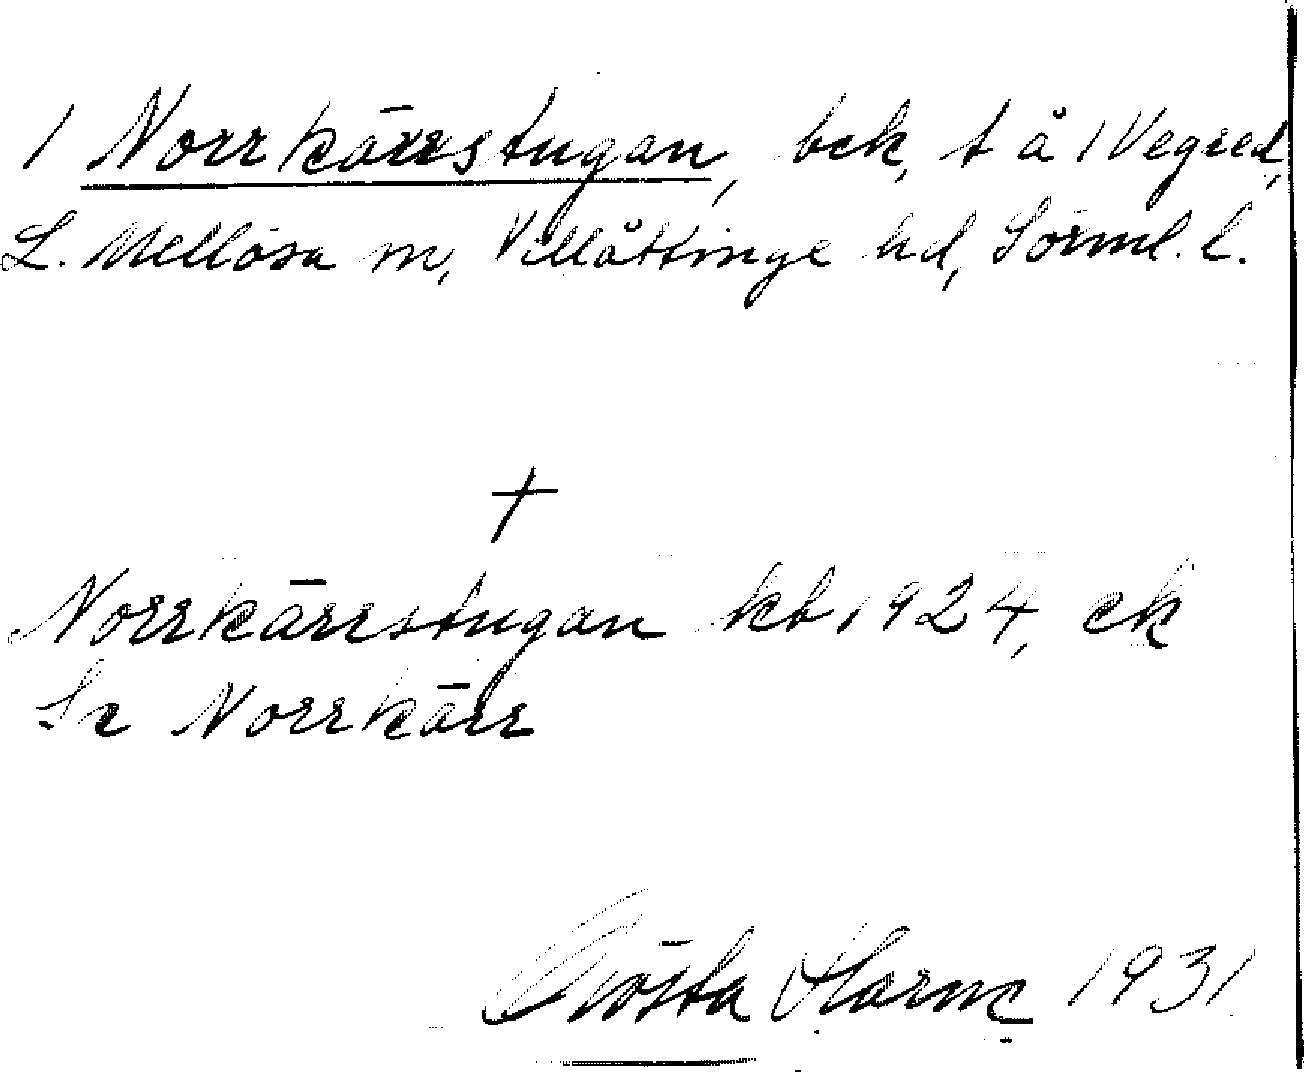 1 Norrkärrstugan, bck, t å 1 Vegred,
L. Mellösa sn, Villåttinge hd, Sörml. l.
†
Norrkärrstugan kb 1924, ek
Se Norrkärr
Gösta 1931